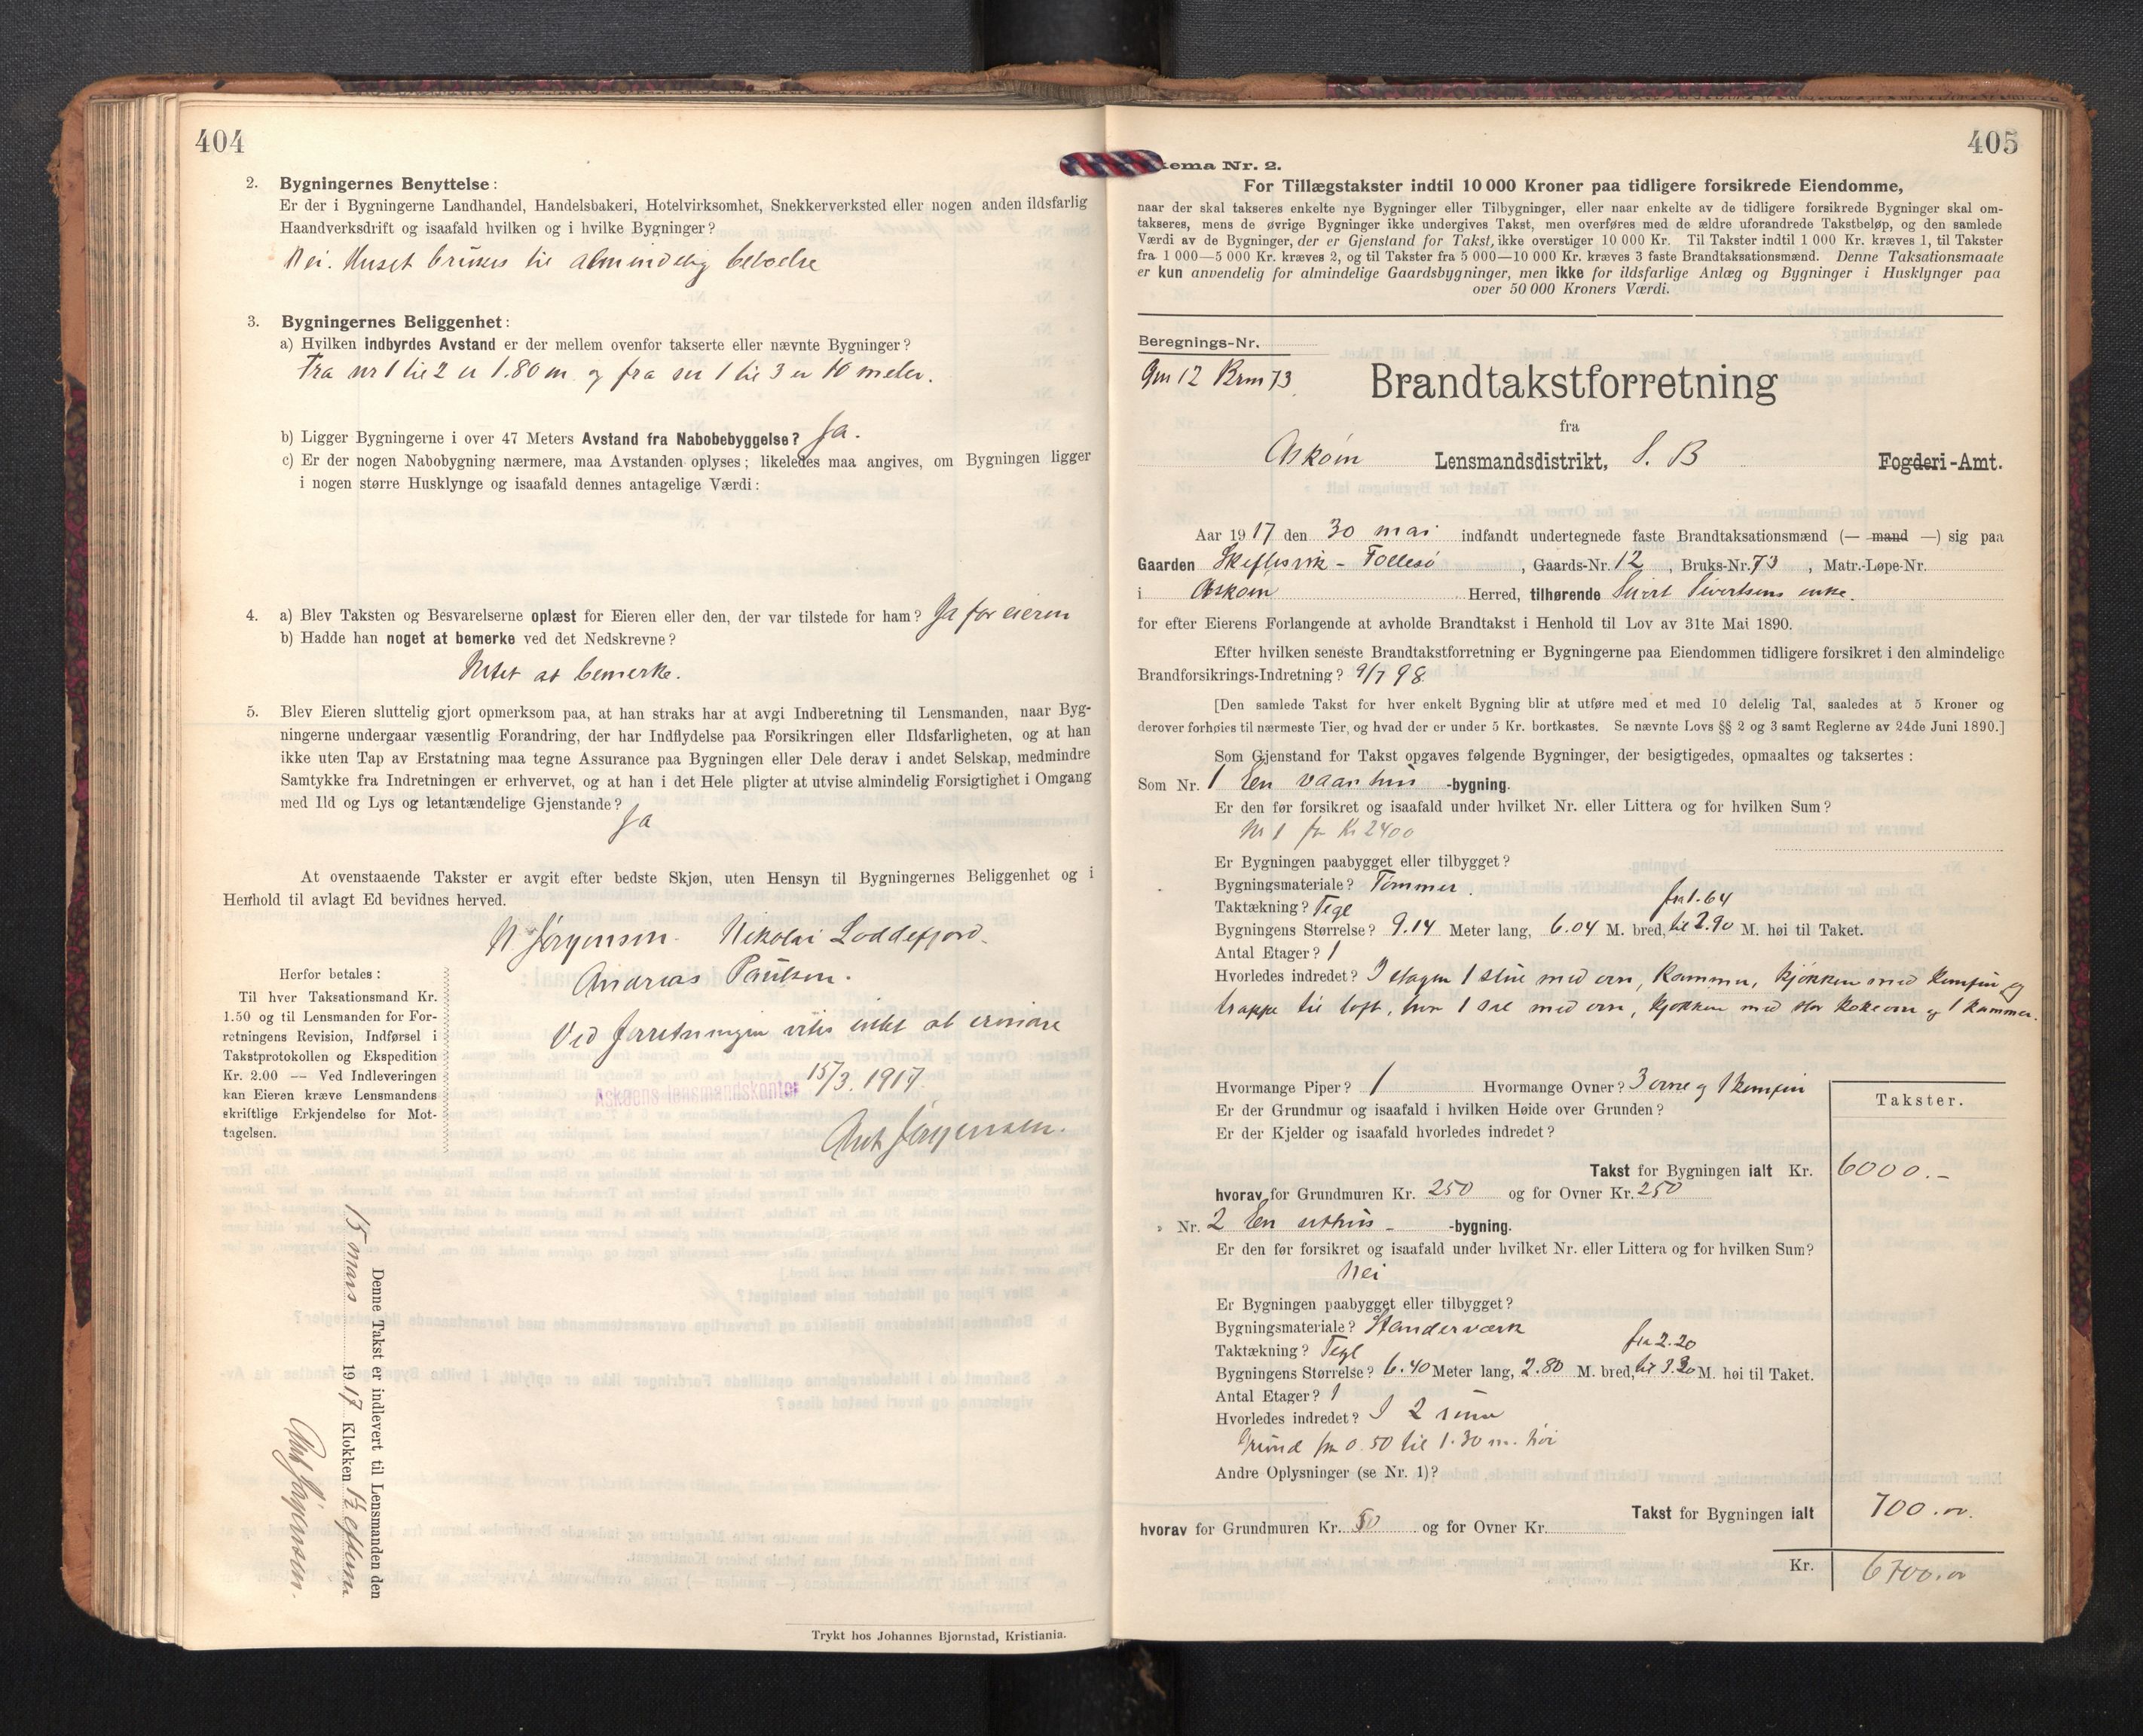 404
2. Bygningernes Benyttelse:
Er der i Bygningerne Landhandel, Handelsbakeri, Hotelvirksomhet, Snekkerverksted eller nogen anden ildsfarlig
Haandverksdrift og isaafald hvilken og i hvilke Bygninger?
Nei. Huset brukes til almindelig beboelse
3. Bygningernes Beliggenhet:
a) Hvilken indbyrdes Avstand er der mellem ovenfor takserte eller nævnte Bygninger?
Fra nr 1 til 2 er 1.80 m og fra nr 1 til 3 er 10 meter.
b) Ligger Bygningerne i over 47 Meters Avstand fra Nabobebyggelse? Ja.
c) Er der nogen Nabobygning nærmere, maa Avstanden oplyses; likeledes maa angives, om Bygningen ligger
i nogen større Husklynge og isaafald dennes antagelige Værdi:
4. a) Blev Taksten og Besvarelserne oplæst for Eieren eller den, der var tilstede for ham? Ja for eieren
b) Hadde han noget at bemerke ved det Nedskrevne?
Intet at bemerke.
5. Blev Eieren sluttelig gjort opmerksom paa, at han straks har at avgi Indberetning til Lensmanden, naar Byg-
ningerne undergaar væsentlig Forandring, der har Indflydelse paa Forsikringen eller Ildsfarligheten, og at han
ikke uten Tap av Erstatning maa tegne Assurance paa Bygningen eller Dele derav i andet Selskap, medmindre
Samtykke fra Indretningen er erhvervet, og at han i det Hele pligter at utvise almindelig Forsigtighet i Omgang
med Ild og Lys og letantændelige Gjenstande?
Ja
At ovenstaaende Takster er avgit efter bedste Skjøn, uten Hensyn til Bygningernes Beliggenhet og i
Henhold til avlagt Ed bevidnes herved.
N Jørgensen. Nikolai Loddefjord.
Andreas Paulsen.
Herfor betales:
Til hver Taksationsmand Kr.
1.50 og til Lensmanden for For-
retningens Revision, Indførsel i
Takstprotokollen og Ekspedition
Kr. 2.00 — Ved Indleveringen
kan Eieren kræve Lensmandens
skriftlige Erkjendelse for Mot-
tagelsen.
Ved forretningen vites intet at erindre
15/3. 1917
Askøens lensmandskontor
Ant Jørgensen.
Denne Takst er indlevert til Lensmanden den
15 mars 1917 Klokken 1½ efterm.
Ant Jørgensen.
Trykt hos Johannes Bjørnstad, Kristiania.
405
kema Nr. 2.
For Tillægstakster indtil 10 000 Kroner paa tidligere forsikrede Eiendomme,
naar der skal takseres enkelte nye Bygninger eller Tilbygninger, eller naar enkelte av de tidligere forsikrede Bygninger skal om-
takseres, mens de øvrige Bygninger ikke undergives Takst, men overføres med de ældre uforandrede Takstbeløp, og den samlede
Værdi av de Bygninger, der er Gjenstand for Takst, ikke overstiger 10 000 Kr. Til Takster indtil 1 000 Kr. kræves 1, til Takster
fra 1 000—5 000 Kr. kræves 2, og til Takster fra 5 000—10 000 Kr. kræves 3 faste Brandtaksationsmænd. Denne Taksationsmaate
er kun anvendelig for almindelige Gaardsbygninger, men ikke for ildsfarlige Anlæg og Bygninger i Husklynger paa
over 50 000 Kroners Værdi.
Beregnings-Nr.
Gnr 12 Brnr 73
Brandtakstforretning
fra
Askøen Lensmandsdistrikt, S. B Fogderi-Amt.
Aar 1917 den 30 mai indfandt undertegnede faste Brandtaksationsmænd (— mand —) sig paa
Gaarden Skeflesvik - Follesø, Gaards-Nr. 12, Bruks-Nr. 73, Matr.-Løpe-Nr.
i Askøen Herred, tilhørende Sivert Sivertsens enke.
for efter Eierens Forlangende at avholde Brandtakst i Henhold til Lov av 31te Mai 1890.
Efter hvilken seneste Brandtakstforretning er Bygningerne paa Eiendommen tidligere forsikret i den almindelige
Brandforsikrings-Indretning? 9/7 98
[Den samlede Takst for hver enkelt Bygning blir at utføre med et med 10 delelig Tal, saaledes at 5 Kroner og
derover forhøies til nærmeste Tier, og hvad der er under 5 Kr. bortkastes. Se nævnte Lovs §§ 2 og 3 samt Reglerne av 24de Juni 1890.]
Som Gjenstand for Takst opgaves følgende Bygninger, der besigtigedes, opmaaltes og taksertes:
Som Nr. 1 En vaanhus -bygning.
Er den før forsikret og isaafald under hvilket Nr. eller Littera og for hvilken Sum?
Nr 1 for Kr 2400
Er Bygningen paabygget eller tilbygget?
Bygningsmateriale? Tømmer
Taktækning? Tegl fra 1.64
Bygningens Størrelse? 9.14 Meter lang, 6.04 M. bred, til 2.90 M. høi til Taket.
Antal Etager? 1
Hvorledes indredet? I etagen 1 stue med ovn, kammer, kjøkken med komfur og
trappe til loft, hvor 1 sal med ovn, kjøkken med stor kokeovn og 1 kammer.
Hvormange Piper? 1 Hvormange Ovner? 3 ovne og 1 komfur
Er der Grundmur og isaafald i hvilken Høide over Grunden?
Er der Kjelder og isaafald hvorledes indredet?
Takster.
Takst for Bygningen ialt Kr. 6000.-
hvorav for Grundmuren Kr. 250 og for Ovner Kr. 250
" Nr. 2 En uthus -bygning.
Er den før forsikret og isaafald under hvilket Nr. eller Littera og for hvilken Sum?
Nei
Er Bygningen paabygget eller tilbygget?
Bygningsmateriale? Standerværk
Taktækning? Tegl fra 2.20
Bygningens Størrelse? 6.40 Meter lang, 2.80 M. bred, til 3.20 M. høi til Taket.
Antal Etager? 1
Hvorledes indredet? I 2 rum
Grund fra 0.50 til 1.30 m. høi
Andre Oplysninger (se Nr. 1)?
Takst for Bygningen ialt 700.00
hvorav for Grundmuren Kr. 50 og for Ovner Kr.
Kr. 6700.00